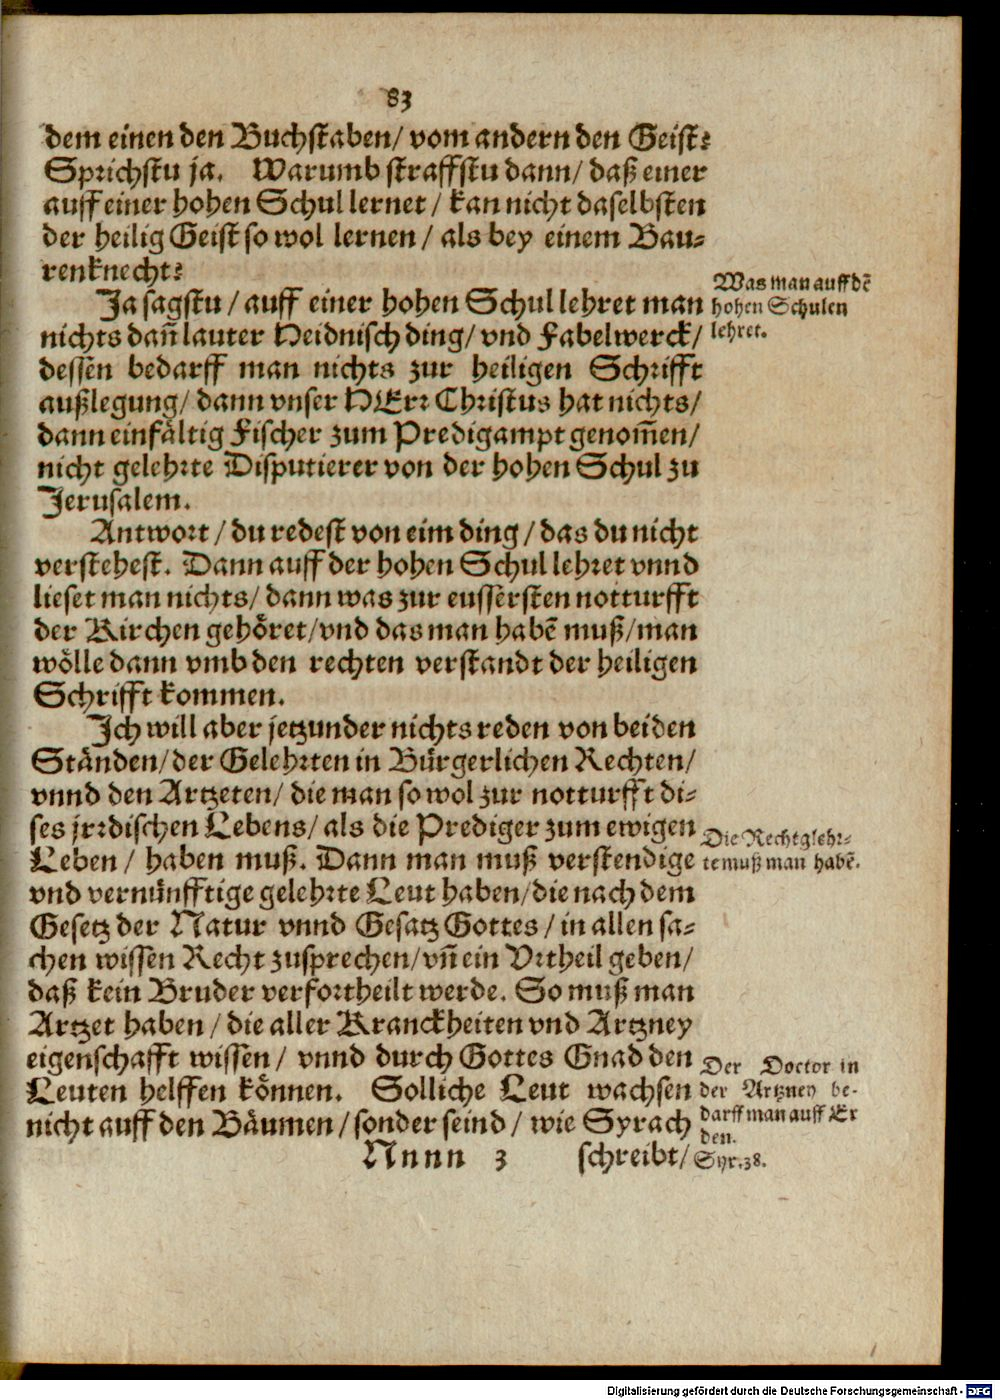 83
dem einen den Buchstaben/ vom andern den Geist?
Sprichstu ja. Warumb straffstu dann/ daß einer
auff einer hohen Schul lernet / kan nicht daselbsten
der heilig Geist so wol lernen / als bey einem Bau-
renknecht?
Ja sagstu / auff einer hohen Schul lehret man
nichts dañ lauter Heidnisch ding/ vnd Fabelwerck/
dessen bedarff man nichts zur heiligen Schrifft
außlegung/ dann vnser HErr Christus hat nichts/
dann einfältig Fischer zum Predigampt genom̃en/
nicht gelehrte Disputierer von der hohen Schul zu
Jerusalem.
Was man auff dẽ
hohen Schulen
lehret.
Antwort / du redest von eim ding / das du nicht
verstehest. Dann auff der hohen Schul lehret vnnd
lieset man nichts/ dann was zur eussersten notturfft
der Kirchen gehöret/vnd das man habẽ muß/man
wölle dann vmb den rechten verstandt der heiligen
Schrifft kommen.
Ich will aber jetzunder nichts reden von beiden
Ständen/der Gelehrten in Bürgerlichen Rechten/
vnnd den Artzeten/ die man so wol zur notturfft di-
ses jrrdischen Lebens/ als die Prediger zum ewigen
Leben / haben muß. Dann man muß verstendige
vnd vernünfftige gelehrte Leut haben/die nach dem
Gesetz der Natur vnnd Gesatz Gottes / in allen sa-
chen wissen Recht zusprechen/vñ ein Vrtheil geben/
daß kein Bruder verfortheilt werde. So muß man
Artzet haben / die aller Kranckheiten vnd Artzney
eigenschafft wissen / vnnd durch Gottes Gnad den
Leuten helffen können. Solliche Leut wachsen
nicht auff den Bäumen / sonder seind / wie Syrach
Die Rechtglehr-
te muß man habẽ.
Der Doctor in
der Artzney be-
darff man auff Er
den.
Syr.38.
Nnnn 3 schreibt/
Digitalisierung gefördert durch die Deutsche Forschungsgemeinschaft - DFG